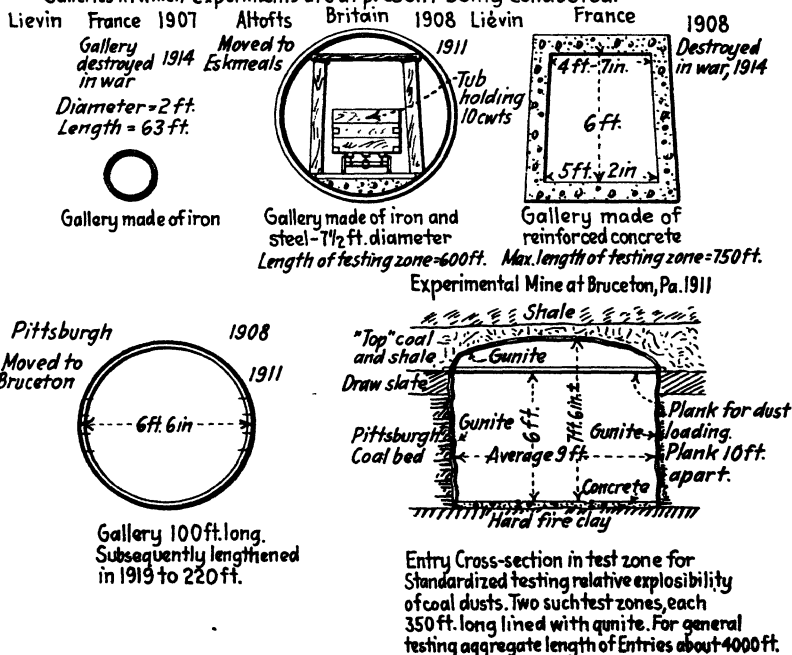 Galleries in which experiments are at present being conducted.
Lievin France 1907
Gallery
destroyed 1914
in war
Diameter=2ft.
Length = 63 ft.
Gallery made of iron
Altofts Britain 1908
Moved to 1911
Eskmeals
Tub
holding
10cwts
Gallery made of iron and
steel-7½ft. diameter
Length of testing zone=600ft.
Liévin France 1908
Destroyed
in war, 1914
4ft-7in.
6ft.
5ft. 2in
Gallery made of
reinforced concrete
Max. length of testing zone=750ft.
Pittsburgh 1908
Moved to 1911
Bruceton
6ft. 6in
Gallery 100ft. long.
Subsequently lengthened
in 1919 to 220ft.
Experimental Mine at Bruceton, Pa. 1911
Shale
"Top" coal
and shale
Gunite
Draw slate
6ft.
7ft. 6in.±
Gunite
Gunite
Plank for dust
loading.
Plank 10ft.
apart.
Pittsburgh
Coal bed
Average 9ft
Concrete
Hard fire clay
Entry Cross-section in test zone for
Standardized testing relative explosibility
of coal dusts. Two such test zones, each
350ft. long lined with gunite. For general
testing aggregate length of Entries about 4000ft.